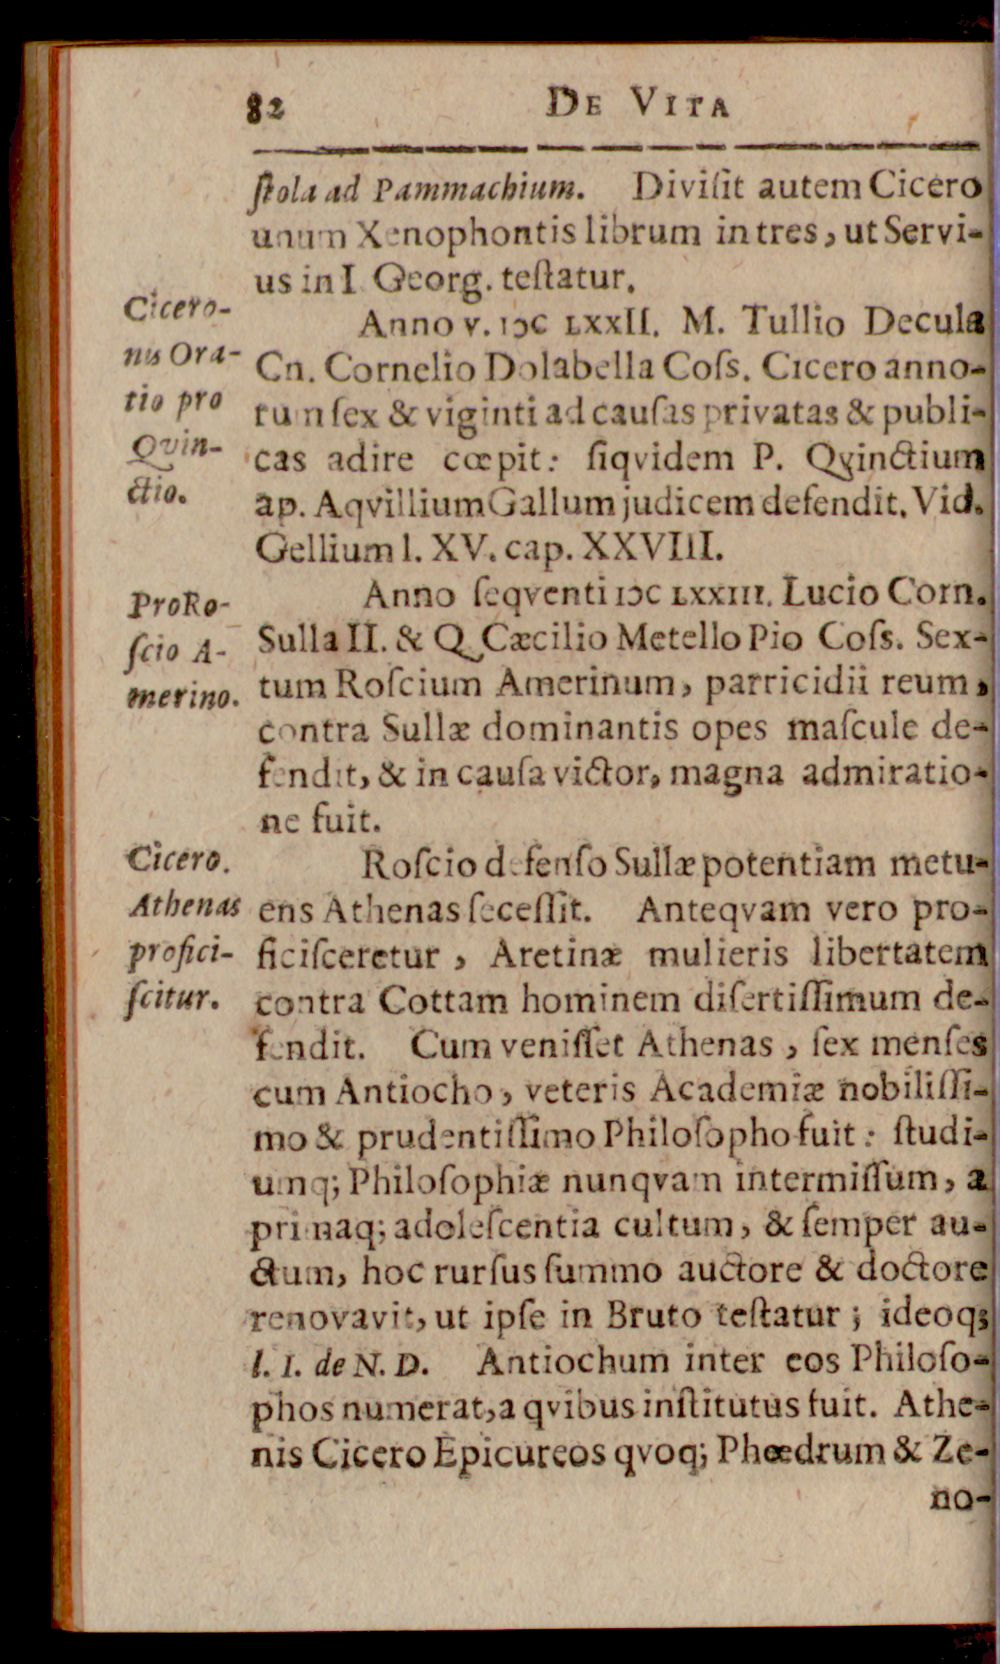 82 DE VITA
ſtola ad Pammachium. Diviſit autem Cicero
unum Xenophontis librum in tres, ut Servi-
us in I Georg. teſtatur.
Cicero-
nis Ora-
tio pro
Qvin-
ctio.
Anno v. IↃC LXXII. M. Tullio Decula
Cn. Cornelio Dolabella Coſs. Cicero anno-
rum ſex & viginti ad cauſas privatas & publi-
cas adire cœpit: ſiqvidem P. Qvinctium
ap. Aqvillium Gallum judicem defendit. Vid.
Gellium l. XV. cap. XXVIII.
ProRo-
ſcio A-
merino.
Anno ſeqventi IↃC LXXIII. Lucio Corn.
Sulla II. & Q Cæcilio Metello Pio Coſs. Sex-
tum Roſcium Amerinum, parricidii reum,
contra Sullæ dominantis opes maſcule de-
fendit, & in cauſa victor, magna admiratio-
ne fuit.
Cicero.
Athenas
profici-
ſcitur.
Roſcio defenſo Sullæ potentiam metu-
ens Athenas ſeceſſit. Anteqvam vero pro-
ficiſceretur, Aretinæ mulieris libertatem
contra Cottam hominem diſertiſſimum de-
fendit. Cum veniſſet Athenas, ſex menſes
cum Antiocho, veteris Academiæ nobiliſſi-
mo & prudentiſſimo Philoſopho fuit: ſtudi-
umq; Philoſophiæ nunqvam intermiſſum, a
primaq; adoleſcentia cultum, & ſemper au-
ctum, hoc rurſus ſummo auctore & doctore
renovavit, ut ipſe in Bruto teſtatur; ideoq;
l. I. de N. D. Antiochum inter eos Philoſo-
phos numerat, a qvibus inſtitutus fuit. Athe-
nis Cicero Epicureos qvoq; Phœdrum & Ze-
no-